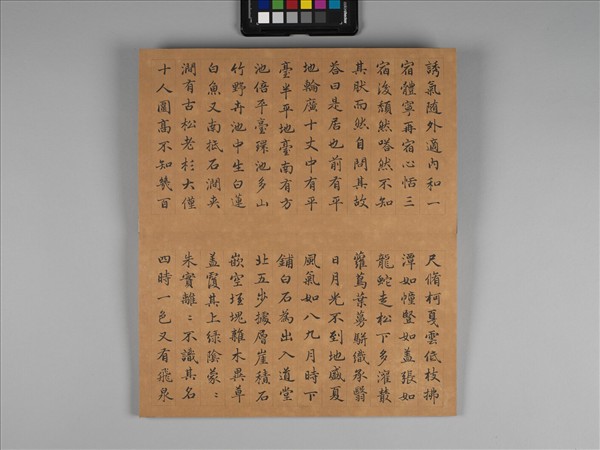 誘氣随外適内和一
宿體寧再宿心恬三
宿浚頹然嗒然不知
其肰而然自問其故
荅曰是居也前有平
地輪廣十丈中有平
臺半平地臺南有方
池倍平臺環池多山
竹野卉池中生白蓮
白魚又南抵石澗夾
澗有古松老杉大僅
十人圍高不知幾百
尺脩柯戛雲低枝拂
潭如憧豎如盖張如
龍蛇走松下多灌叢
蘿蔦葉蔓駢織承翳
日月光不到地盛夏
風氣如八九月時下
鋪白石為出入道堂
北五步據層崖積石
嵌空垤塊雜木異草
盖覆其上緑陰蒙〻
朱實離〻不識其名
四時一色又有飛泉